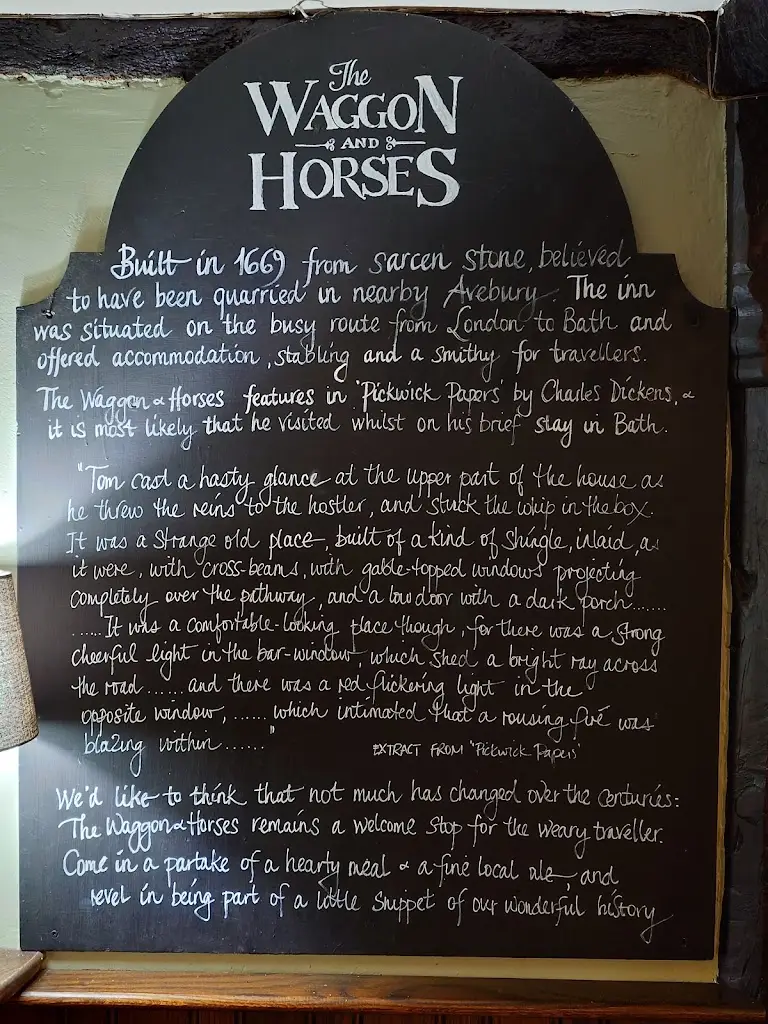 The
WAGGON
AND
HORSES
Built in 1669 from sarcen stone, believed
to have been quarried in nearby Avebury. The inn
was situated on the busy route from London to Bath and
offered accommodation, stabling and a smithy for travellers.
The Waggon & Horses features in 'Pickwick Papers' by Charles Dickens, &
it is most likely that he visited whilst on his brief stay in Bath.
"Tom cast a hasty glance at the upper part of the house as
he threw the reins to the hostler, and stuck the whip in the box.
It was a strange old place, built of a kind of shingle, inlaid, as
it were, with cross-beams, with gable-topped windows projecting
completely over the pathway, and a low door with a dark porch.......
......It was a comfortable-looking place though, for there was a strong
cheerful light in the bar-window, which shed a bright ray across
the road ...... and there was a red flickering light in the
opposite window, ...... which intimated that a rousing fire was
blazing within......"
EXTRACT FROM 'Pickwick Papers'
We'd like to think that not much has changed over the centuries:
The Waggon & Horses remains a welcome stop for the weary traveller.
Come in a partake of a hearty meal & a fine local ale, and
revel in being part of a little snippet of our wonderful history